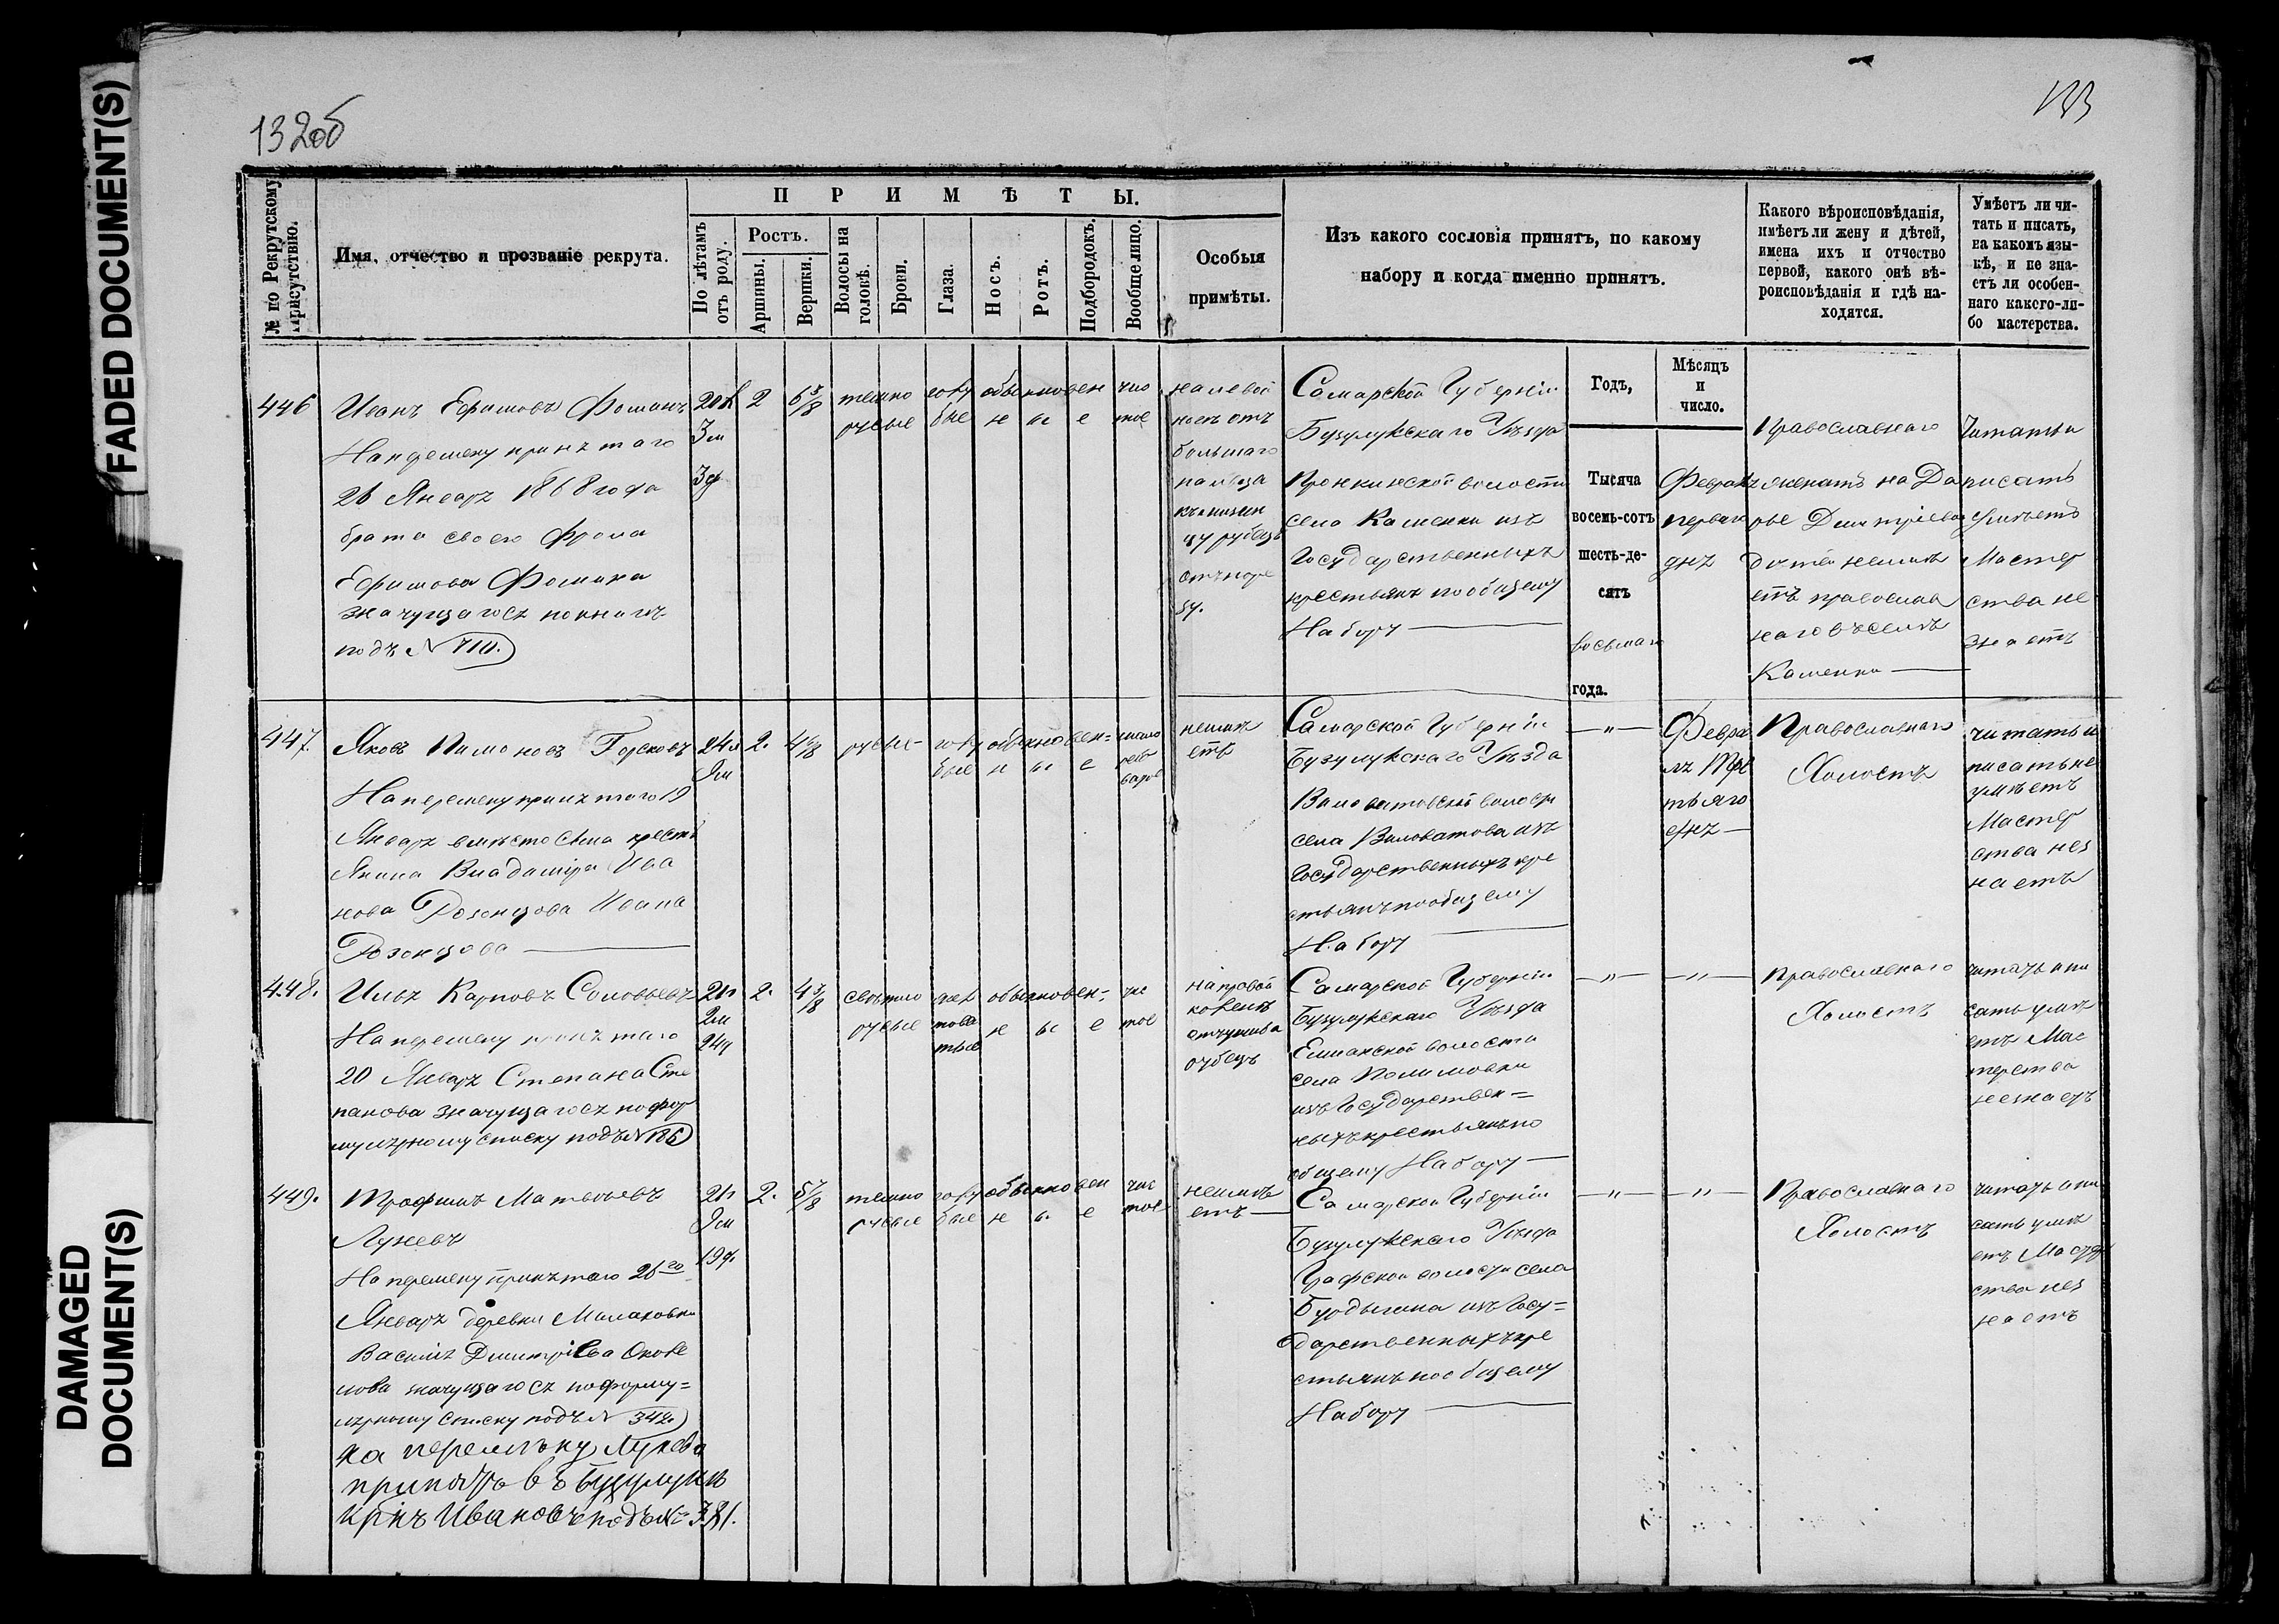 FADED DOCUMENT(S)
DAMAGED
DOCUMENT(S)
132об
133
№ по Рекрутскому
Присутствію.
Имя, отчество и прозваніе рекрута.
ПРИМѢТЫ.
По лѣтамъ
отъ роду.
Ростъ.
Аршины.
Вершки.
Волосы на
головѣ.
Брови.
Глаза.
Носъ.
Ротъ.
Подбородокъ.
Вообще лицо.
Особыя
примѣты.
Изъ какого сословія принятъ, по какому
набору и когда именно принятъ.
Какого вѣроисповѣданія,
имѣетъ ли жену и дѣтей,
имена ихъ и отчество
первой, какого онѣ вѣ-
роисповѣданія и гдѣ на-
ходятся.
Умѣетъ ли чи-
тать и писать,
на какомъ язы-
кѣ, и не зна-
етъ ли особен-
наго какого-ли-
бо мастерства.
Годъ,
Мѣсяцъ
и
число.
446
Иванъ Ефимовъ Фоминъ
На перемену принятаго
26 Января 1868 года
брата своего
Ефимова Фомина
значущагося по книгѣ
подъ №
3м
2
6 5/8
темно
русые
голу
бые
обыкновен
н ы е
чис
тое
на левой
ноге отъ
большаго
пальца
рубецъ
Самарской Губерніи
Бузулукскаго Уѣзда
Пронкинской волости
села Каменки изъ
Государственныхъ
крестьянъ по общему
Набору
Тысяча
восемь-сотъ
шесть-де-
сятъ
восьмаго
года.
Февраля
перваго
дня
Православнаго
женатъ на Да
рье Дмитріевой
детей неиме
етъ православ
наго въ селѣ
Каменки
Читать и
писать
умѣетъ
Мастер
ства не
знаетъ
447.
Яковъ Пимоновъ Горковъ
На перемену принятаго 19
Января вместо сына кресть
янина Владимира Ива
нова Розонцова Ивана
Розонцова
24л
9м
2.
4 6/8
русые
голу
бые
обыкновен=
н ы е
неиме
етъ
Самарской Губерніи
Бузулукскаго Уѣзда
Виловатовской волости
села Виловатова изъ
Государственныхъ кре
стьянъ по общему
Набору
— " —
Февра
ля Тре
тьяго
дня —
Православнаго
Холостъ
читать и
писать не
умѣетъ
Мастер
ства нез
наетъ
448.
Илья Карповъ Соловьевъ
На перемену принятаго
20 Января Степана Сте
панова значущагося по фор
мулярному списку подъ № 186
21л
2м
24д
2.
4 3/8
светло
русые
обыкновен=
н ы е
чис
тое
на правой
рубецъ
Самарской Губерніи
Бузулукскаго Уѣзда
Елшанской волости
села Полимовки
изъ Государствен=
ныхъ крестьянъ по
общему Набору —
— " —
— " —
Православнаго
Холостъ
читать и пи
сать умѣ
етъ Мас
терства
незнаетъ
449.
Трофимъ Матвѣевъ
Луневъ
На перемену принятаго 26го
Января деревни Малаховки
Василія Дмитріева
значущагося по форму=
лярному списку подъ № 342
на перемѣну Лунева
принятъ въ Бузулукѣ
крнъ Ивановъ подъ № 381.
21л
9м
19д.
2.
5 7/8
темно
русые
голу
бые
обыкновен
н ы е
чис
тое
неимѣ
етъ —
Самарской Губерніи
Бузулукскаго Уѣзда
Графской волости села
Бурдыгина изъ Госу=
дарственныхъ кре
стьянъ по общему
Набору
— " —
— " —
Православнаго
Холостъ
читать и пи
сать умѣ
етъ Мастер
ства нез
наетъ